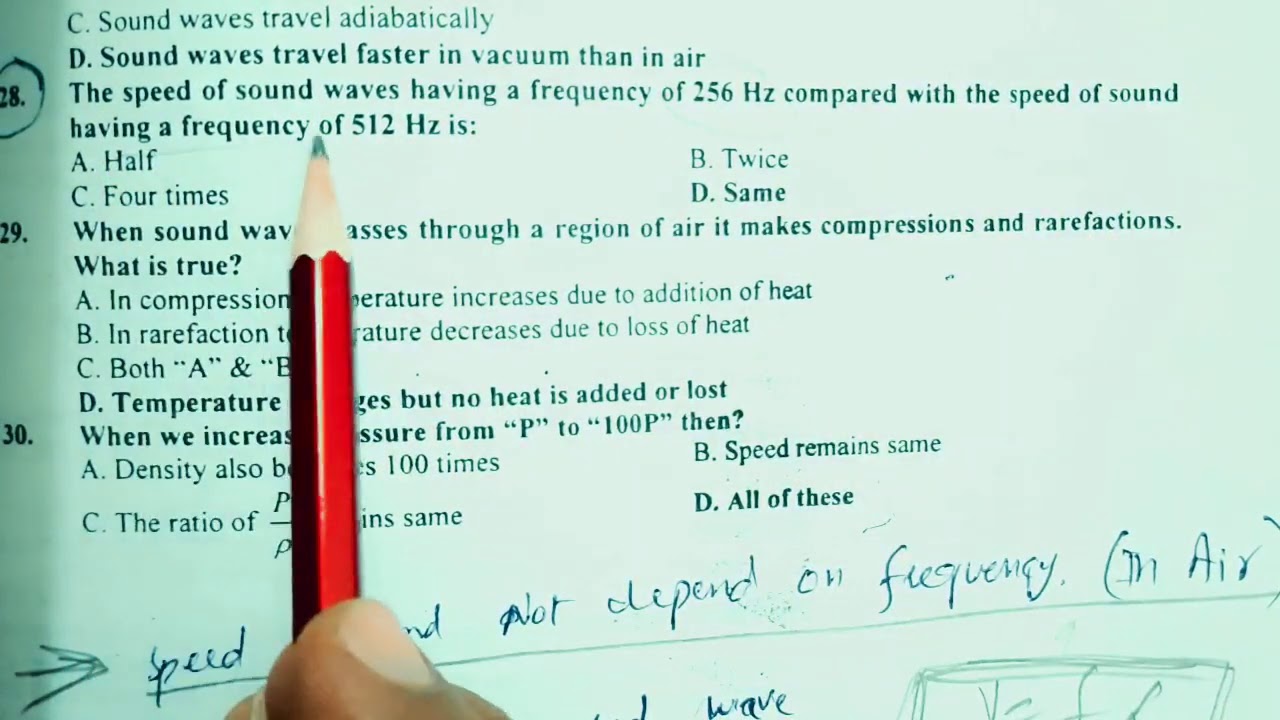 C. Sound waves travel adiabatically
D. Sound waves travel faster in vacuum than in air
28. The speed of sound waves having a frequency of 256 Hz compared with the speed of sound
having a frequency of 512 Hz is:
A. Half B. Twice
C. Four times D. Same
29. When sound wav asses through a region of air it makes compressions and rarefactions.
What is true?
A. In compression erature increases due to addition of heat
B. In rarefaction t rature decreases due to loss of heat
C. Both "A" & "B
D. Temperature ges but no heat is added or lost
30. When we increas ssure from "P" to "100P" then?
A. Density also b s 100 times B. Speed remains same
C. The ratio of P/ρ ins same D. All of these
speed nd Not depend on frequency. (In Air)
nd wave